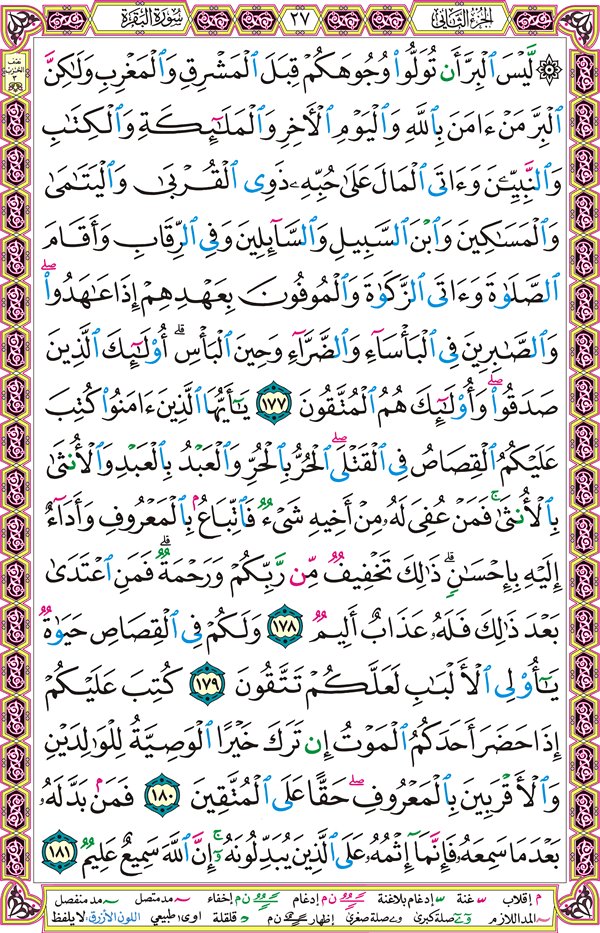 الجزء الثاني ٢٧ سورة البقرة
نصف الحزب ٣
۞ لَّيْسَ الْبِرَّ أَن تُوَلُّوا۟ وُجُوهَكُمْ قِبَلَ الْمَشْرِقِ وَالْمَغْرِبِ وَلَٰكِنَّ
الْبِرَّ مَنْ ءَامَنَ بِاللَّهِ وَالْيَوْمِ الْأَخِرِ وَالْمَلَٰٓئِكَةِ وَالْكِتَٰبِ
وَالنَّبِيِّۦنَ وَءَاتَى الْمَالَ عَلَىٰ حُبِّهِۦ ذَوِى الْقُرْبَىٰ وَالْيَتَٰمَىٰ
وَالْمَسَٰكِينَ وَابْنَ السَّبِيلِ وَالسَّآئِلِينَ وَفِى الرِّقَابِ وَأَقَامَ
الصَّلَوٰةَ وَءَاتَى الزَّكَوٰةَ وَالْمُوفُونَ بِعَهْدِهِمْ إِذَا عَٰهَدُوا۟ ۖ
وَالصَّٰبِرِينَ فِى الْبَأْسَآءِ وَالضَّرَّآءِ وَحِينَ الْبَأْسِ ۗ أُو۟لَٰٓئِكَ الَّذِينَ
صَدَقُوا۟ ۖ وَأُو۟لَٰٓئِكَ هُمُ الْمُتَّقُونَ ١٧٧ يَٰٓأَيُّهَا الَّذِينَ ءَامَنُوا۟ كُتِبَ
عَلَيْكُمُ الْقِصَاصُ فِى الْقَتْلَى ۖ الْحُرُّ بِالْحُرِّ وَالْعَبْدُ بِالْعَبْدِ وَالْأُنثَىٰ
بِالْأُنثَىٰ ۚ فَمَنْ عُفِىَ لَهُۥ مِنْ أَخِيهِ شَىْءٌ فَاتِّبَاعٌۢ بِالْمَعْرُوفِ وَأَدَآءٌ
إِلَيْهِ بِإِحْسَٰنٍ ۗ ذَٰلِكَ تَخْفِيفٌ مِّن رَّبِّكُمْ وَرَحْمَةٌ ۗ فَمَنِ اعْتَدَىٰ
بَعْدَ ذَٰلِكَ فَلَهُۥ عَذَابٌ أَلِيمٌ ١٧٨ وَلَكُمْ فِى الْقِصَاصِ حَيَوٰةٌ
يَٰٓأُو۟لِى الْأَلْبَٰبِ لَعَلَّكُمْ تَتَّقُونَ ١٧٩ كُتِبَ عَلَيْكُمْ
إِذَا حَضَرَ أَحَدَكُمُ الْمَوْتُ إِن تَرَكَ خَيْرًا الْوَصِيَّةُ لِلْوَٰلِدَيْنِ
وَالْأَقْرَبِينَ بِالْمَعْرُوفِ ۖ حَقًّا عَلَى الْمُتَّقِينَ ١٨٠ فَمَنۢ بَدَّلَهُۥ
بَعْدَ مَا سَمِعَهُۥ فَإِنَّمَآ إِثْمُهُۥ عَلَى الَّذِينَ يُبَدِّلُونَهُۥٓ ۚ إِنَّ اللَّهَ سَمِيعٌ عَلِيمٌ ١٨١
م إقلاب غنة إدغام بلاغنة ن م إدغام ن م إخفاء مد متصل مد منفصل
المد اللازم صلة كبرى صلة صغرى إظهار ن م قلقلة اوى؛ طبيعي اللون الأزرق: لا يلفظ